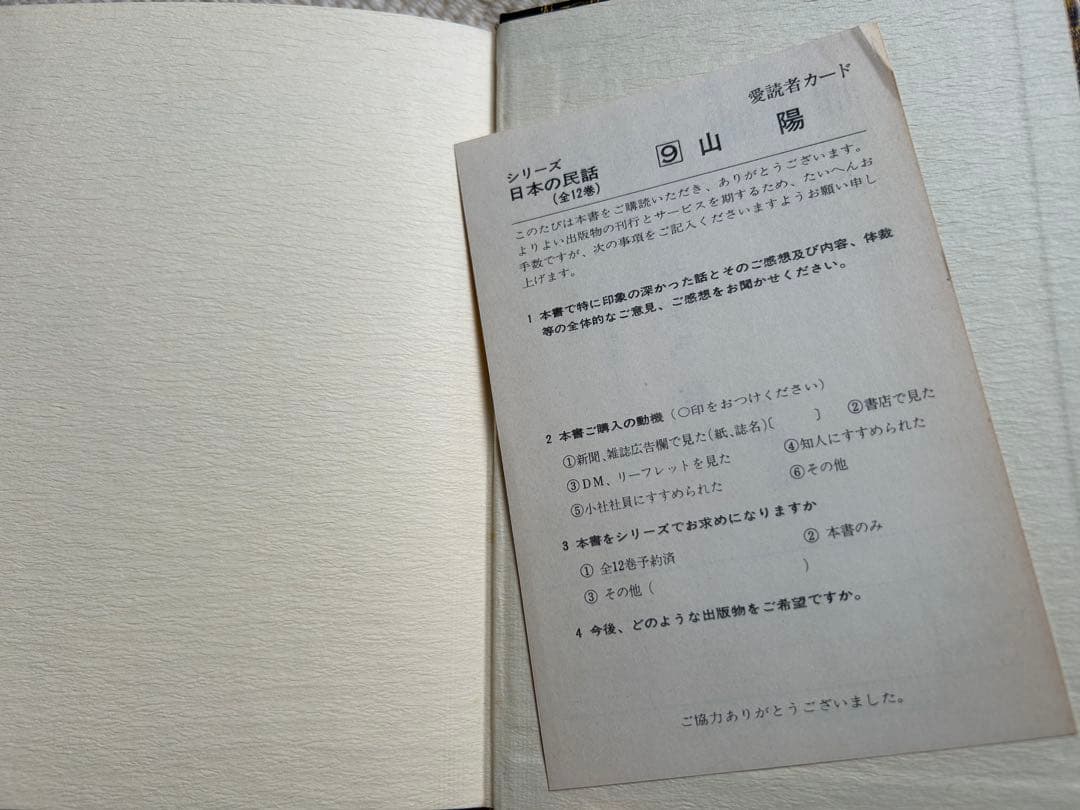 愛読者カード
シリーズ
日本の民話
(全12巻)
9 山 陽
このたびは本書をご購読いただき、ありがとうございます。
よりよい出版物の刊行とサービスを期するため、たいへんお
手数ですが、次の事項をご記入くださいますようお願い申し
上げます。
1 本書で特に印象の深かった話とそのご感想及び内容、体裁
等の全体的なご意見、ご感想をお聞かせください。
2 本書ご購入の動機(○印をおつけください)
①新聞、雑誌広告欄で見た(紙、誌名)〔 〕 ②書店で見た
③DM、リーフレットを見た ④知人にすすめられた
⑤小社社員にすすめられた ⑥その他
3 本書をシリーズでお求めになりますか
① 全12巻予約済 ② 本書のみ
③ その他( )
4 今後、どのような出版物をご希望ですか。
ご協力ありがとうございました。